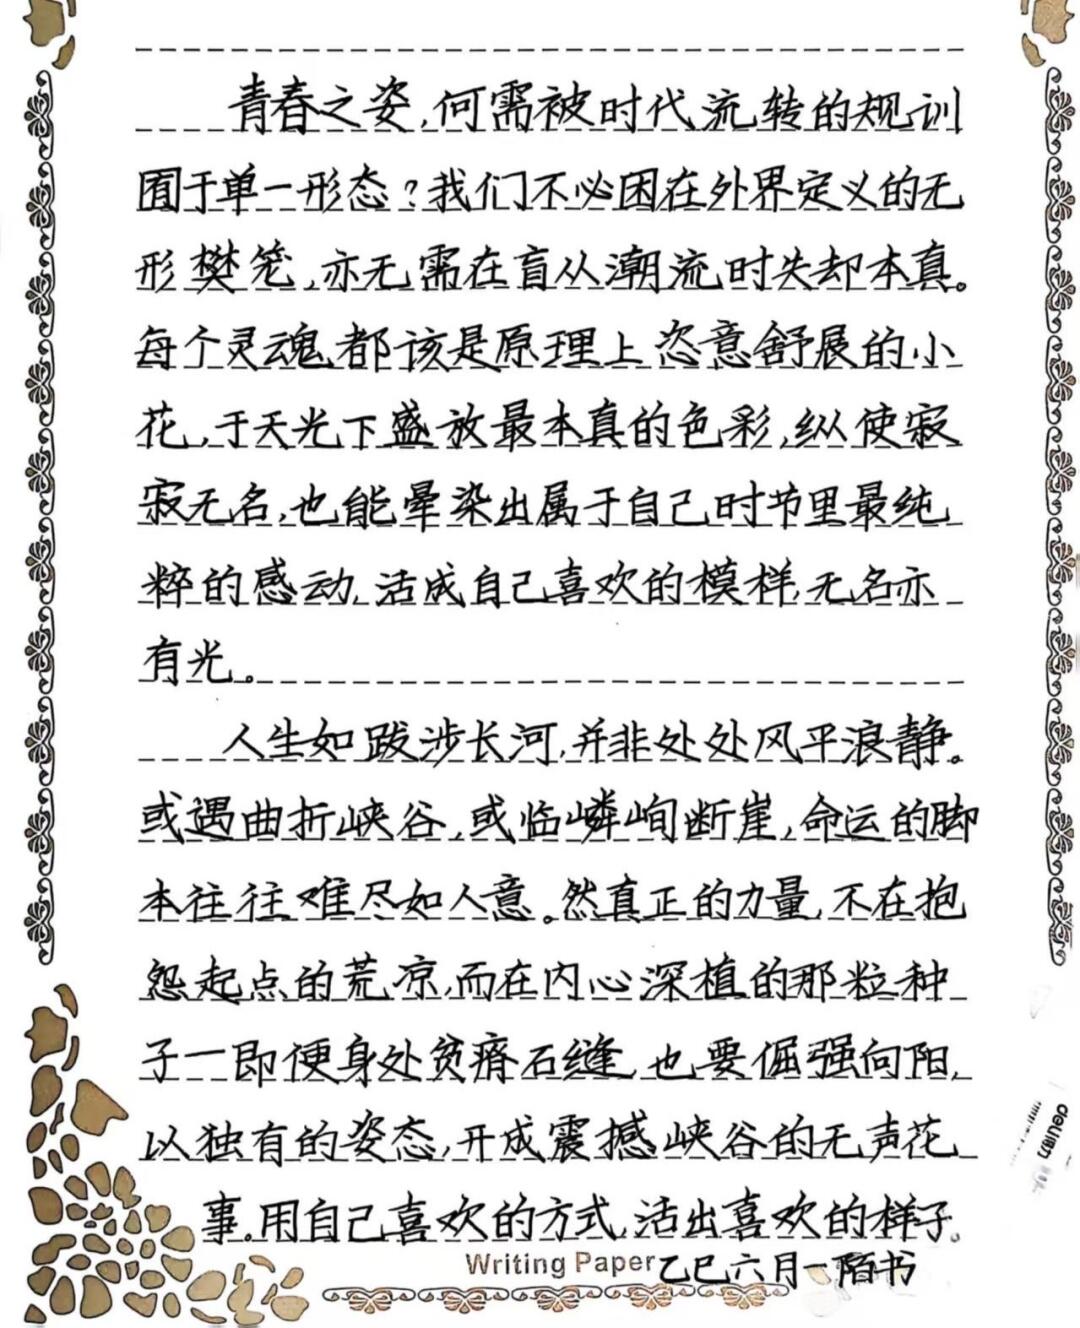 青春之姿,何需被时代流转的规训
囿于单一形态?我们不必困在外界定义的无
形樊笼,亦无需在盲从潮流时失却本真。
每个灵魂都该是原理上恣意舒展的小
花,于天光下盛放最本真的色彩,纵使寂
寂无名,也能晕染出属于自己时节里最纯
粹的感动,活成自己喜欢的模样,无名亦
有光。
人生如跋涉长河,并非处处风平浪静。
或遇曲折峡谷,或临嶙峋断崖,命运的脚
本往往难尽如人意。然真正的力量,不在抱
怨起点的荒凉,而在内心深植的那粒种
子一即便身处贫瘠石缝,也要倔强向阳,
以独有的姿态,开成震撼峡谷的无声花
事。用自己喜欢的方式,活出喜欢的样子。
Writing Paper 乙巳六月一陌书
deli